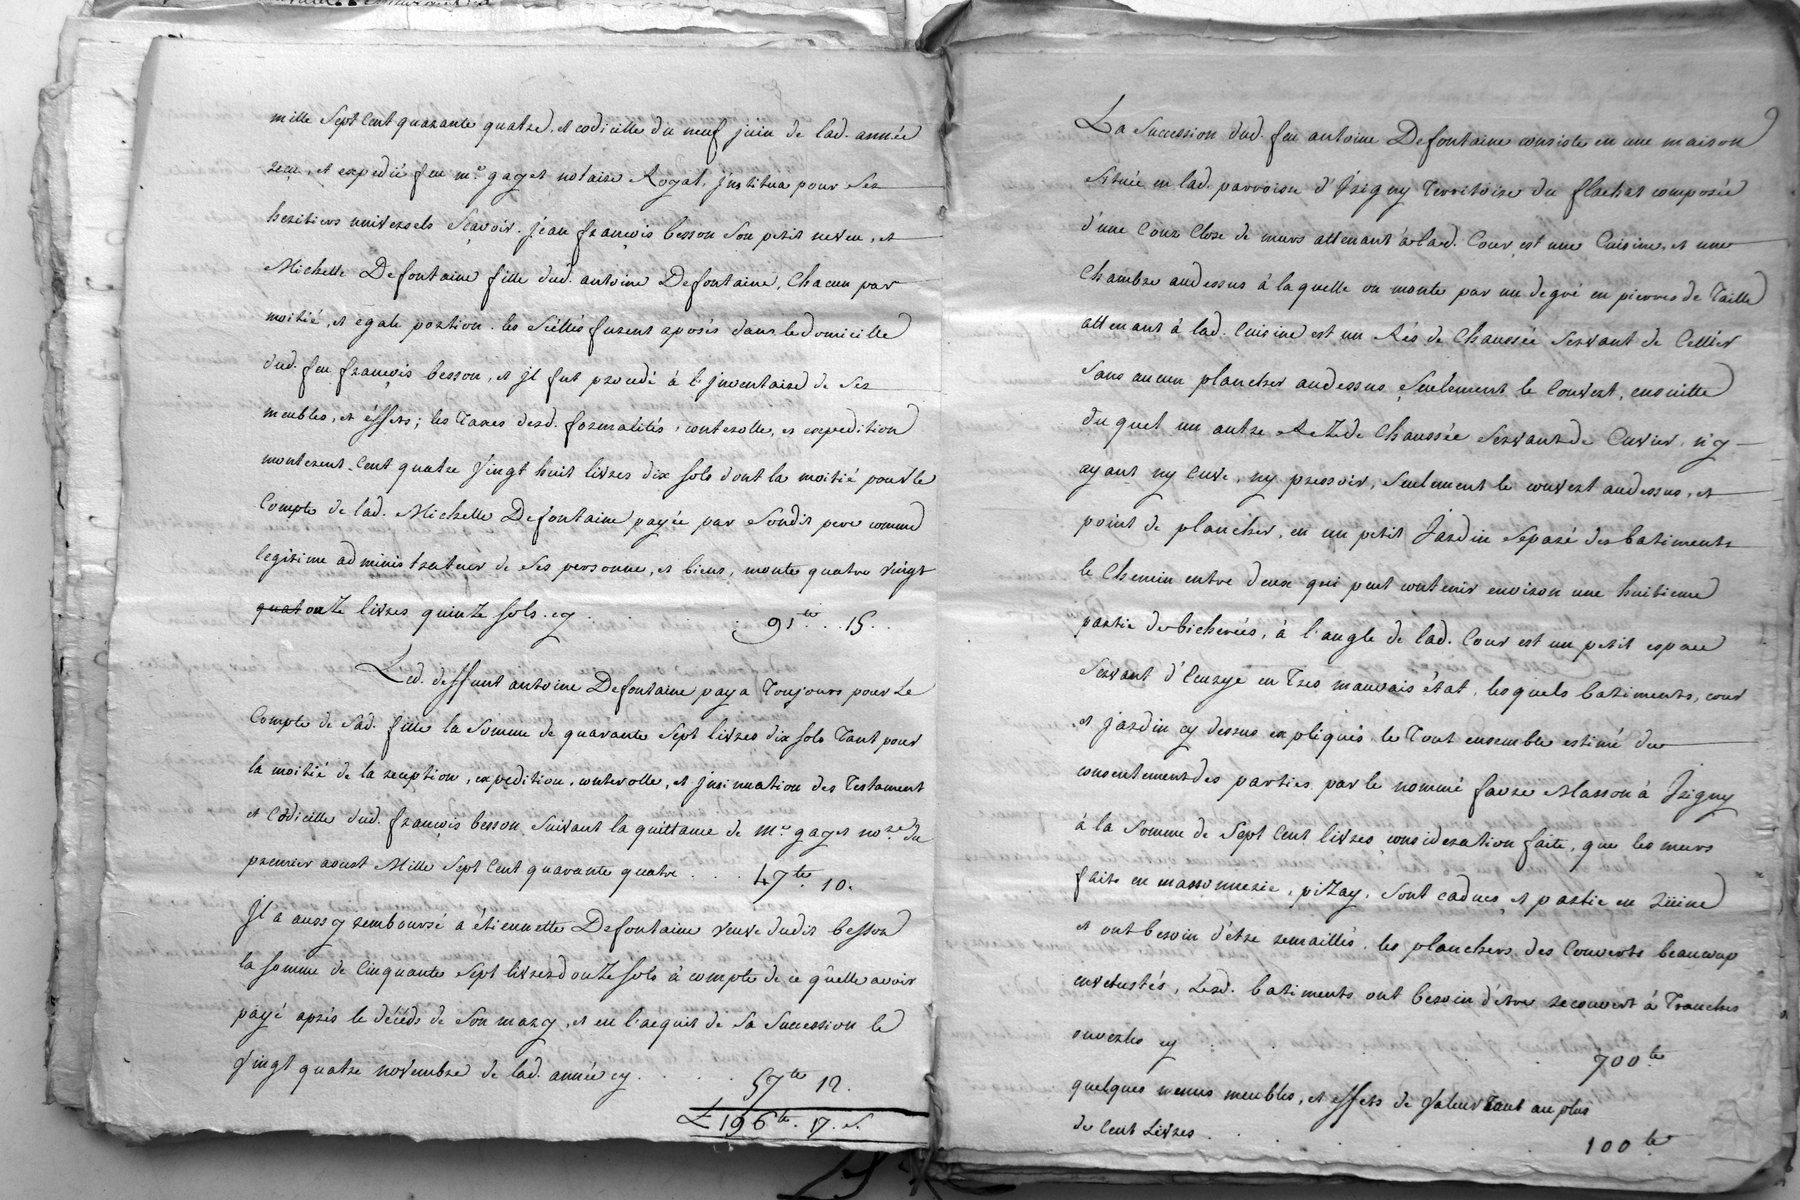 mille Sept Cent quarante quatre, et codicille du neuf juin de lad. année
receu, et expedié feu me. gayet notaire Royal, jnstitua pour Ses
heritiers universels Sçavoir. jean françois besson Son petit neveu, et
Michelle Defontaine fille dud. antoine Defontaine, Chacun par
moitié, et égale portion. les Scéllés furent aposés dans le domicille
dud. feu françois besson, et jl fut procedé à l'jnventaire de Ses
meubles, et éffets; les Taxes desd. formalités, conterolle, et expedition
monterent Cent quatre Vingt huit livres dix sols dont la moitié pour le
Compte de lad. Michelle Defontaine payée par Sondit pere comme
legitime administrateur de Ses personne, et biens, monte quatre vingt
quatonze livres quinze sols. cy . . . . 91lt . . 15 . .
Led. deffunt antoine Defontaine paya Toujours pour Le
Compte de Sad. fille la Somme de quarante Sept livres dix sols Tant pour
la moitié de la reception, expedition, conterolle, et jnsinuation des Testament
et Codicille dud. françois besson, Suivant la quittance de me. gayet nore. du
premier aoust Mille Sept Cent quarante quatre . . . . 47lt. 10.
jl a aussy remboursé à étiennette Defontaine veuve dudit besson
la somme de Cinquante Sept livres douze sols à compte de ce qu'elle avoit
payé aprés le décéds de Son mary, et en l'acquit de Sa Succession le
Vingt quatre novembre de lad. année cy . . . . . 57lt 12.
£ 196lt. 17. s.
La Succession dud. feu antoine Defontaine consiste en une maison
Située en lad. parroisse d'Irigny Territoire du flachat composée
d'une Cour Close de murs attenant à lad. Cour est une Cuisine, et une
Chambre audessus à laquelle on monte par un degré en pierres de Taille
attenant à lad. Cuisine est un Rés de Chaussée Servant de Cellier
Sans aucun plancher audessus, Seulement le Couvert, ensuitte
duquel un autre Rez de Chaussée Servant de Cuvier, n'y
ayant ny Cuve, ny pressoir, Seulement le couvert audessus, et
point de plancher, en un petit Jardin Separé des batiments
le Chemin entre deux qui peut contenir environ une huitieme
partie de bicherées, à l'angle de lad. Cour est un petit espace
Servant d'Ecurye en Tres mauvais état, lesquels batiments, cour
et jardin cy dessus expliqués le Tout ensemble estimé du
consentement des parties par le nommé favre Masson à Irigny
à la Somme de Sept Cent livres consideration faite, que les murs
faits en massonnerie, pizay, Sont caducs, et partie en ruine
et ont besoin d'être remaillés, les planchers des Couverts beaucoup
envetustés, Lesd. batiments ont besoin d'être recouvert à Tranches
ouvertes cy . . . . . 700lt
quelques menus meubles, et effets de valeur Tant au plus
de Cent Livres . . . . . 100lt